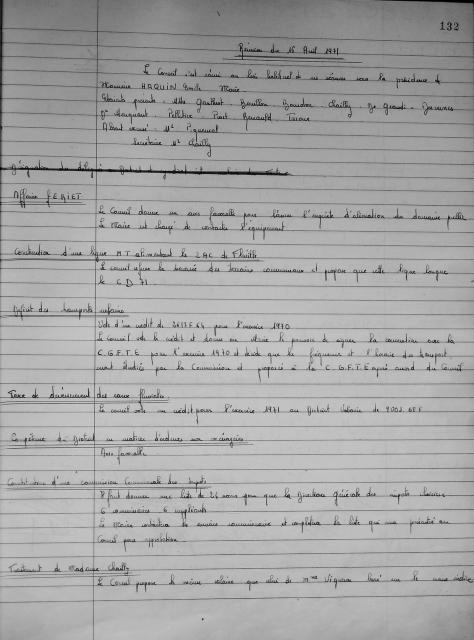 132
Réunion du 16 Avril 1971
Le Conseil s'est réuni au lieu habituel de ses séances sous la présidence de
Monsieur HAQUIN Emile Maire
Etaient présents : Mlle Gauthier Bouillon Chailly De
Pelletier Piart Renauld
Absent excusé : Mr Piquenot
Secrétaire Mr Chailly
Affaire FERIET
Le Conseil donne un avis favorable pour l'enquête d'aliénation du domaine public
Le Maire est chargé de contacter l'équipement
Construction d'une ligne MT alimentant le ZAC de
Le conseil refuse la traversée des terrains communaux et propose que cette ligne longue
le CD 71
Déficit des transports urbains
Vote d'un crédit de 3617F64 pour l'exercice 1970
Le Conseil vote le crédit et donne au Maire le pouvoir de signer la convention avec la
C.G.F.T.E pour l'exercice 1970 et décide que la fréquence et l'horaire des transports
seront étudiés par la Commission et proposés à la C.G.F.T.E après accord du Conseil
Taxe de déversement des eaux pluviales
Le conseil vote un crédit pour l'exercice 1971 au District Urbain de
Compétence du District en matière d'ordures non ménagères
Avis favorable
Constitution d'une commission Communale des Impôts
Il faut donner une liste de 24 noms pour que la Direction Générale des impôts choisisse
6 commissaires 6 suppléants
Le Maire contactera les anciens commissaires et complétera la liste qui sera présentée au
Conseil pour approbation
Traitement de Madame Chailly
Le Conseil propose le même salaire que celui de Mme basé sur le même indice